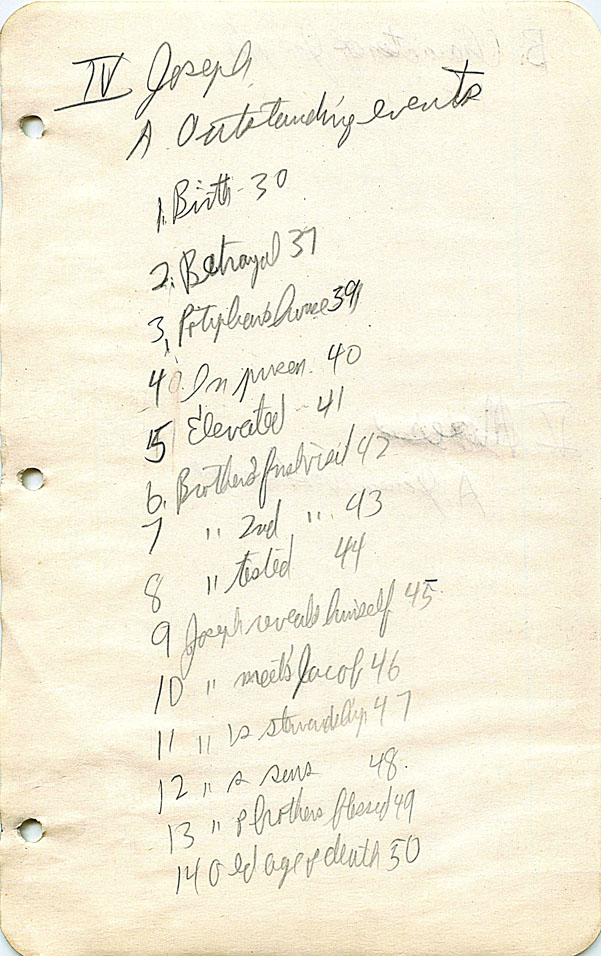 IV Joseph
A. Outstanding events
1. Birth - 30
2. Betrayal 37
3. Potiphar's house 39
4. In prison. 40
5 Elevated - 41
6. Brothers first visit 42
7 " 2nd ". 43
8 " tested 44
9 Joseph reveals himself 45
10 " meets Jacob 46
11 " 's stewardship 47
12 " 's sons 48.
13 " & brothers blessed 49
14 Old age & death 50